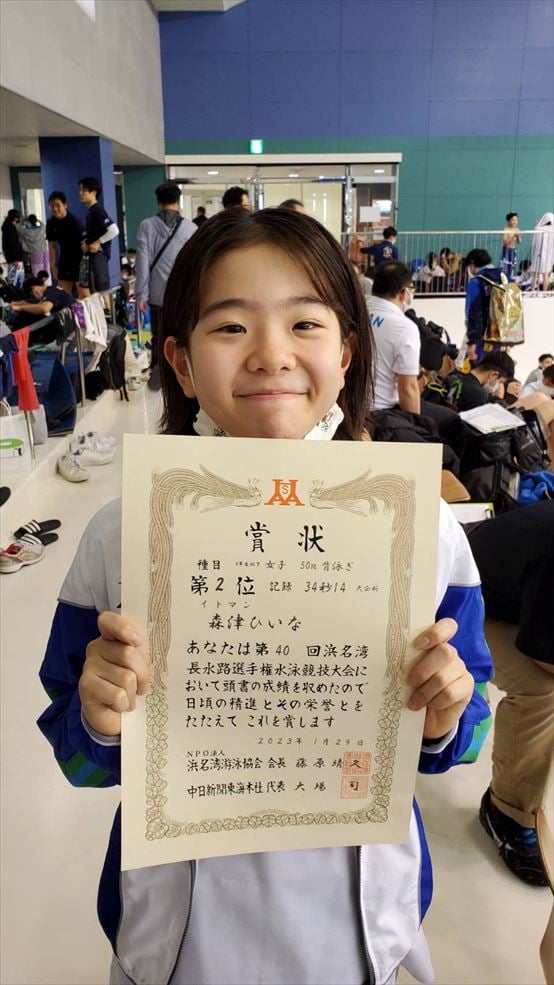 賞状
種目 4年生以下 女子 50m 背泳ぎ
第2位 記録 34秒14 大会新
イトマン
森津ひいな
あなたは第40回浜名湾
長水路選手権水泳競技大会に
おいて頭書の成績を収めたので
日頃の精進とその栄誉とを
たたえて これを賞します
2023年 1月29日
NPO法人
浜名湾游泳協会 会長 藤原靖久
中日新聞東海本社 代表 大場 司